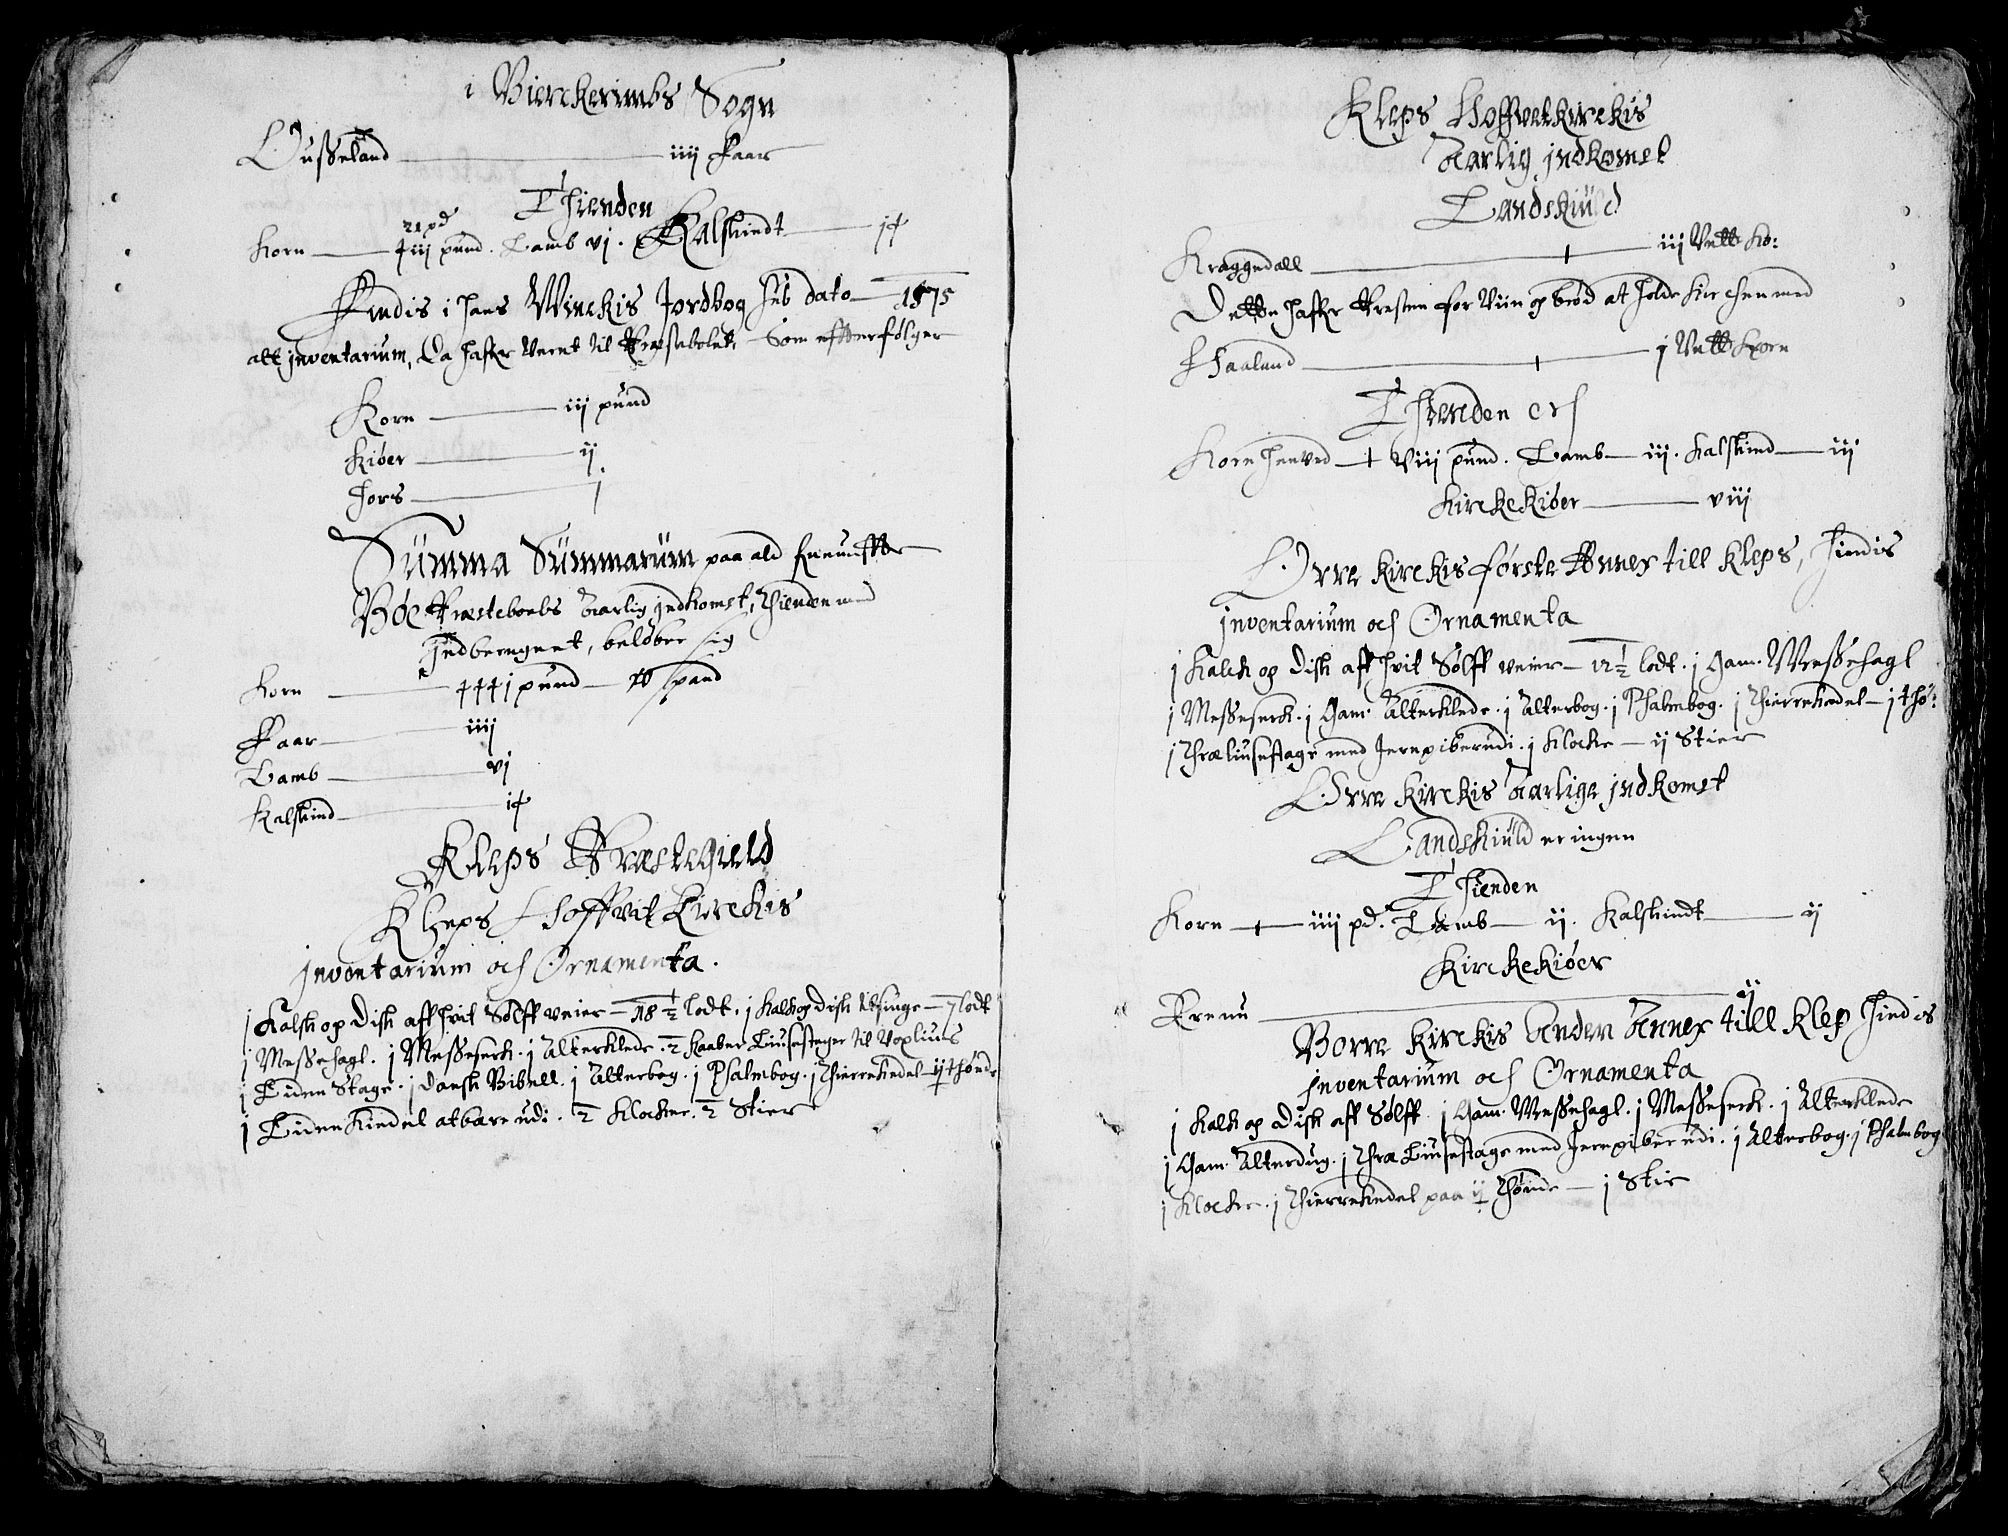 i Bierckerimbs Sogn
Ousseland iiij Faar
Thienden
21 pd
Korn xiij pund. Lamb vj. Kalskindt ix
Findis i Jens Winckis Jordbog sub dato 1575
alt inventarium, da hafuer veret til Præstebolet, Som effterfølger
Korn iij pund
Kiøer ij
Hors j
Summa Summarum paa ald
Bøe Præsteboels Aarlig jndkomst, Thienden med
jndberegnet, beløber sig
Korn xxxj pund spand
Faar iiij
Lamb vj
Kalskind ix
Kleps Præstegield
Kleps Hoffvit Kirckis
inventarium och Ornamenta.
j Kalch og Disk aff hvit Sølff veier 18 1/2 lodt. j Kalch og Disk til siuge 7 lodt
j Messehagl. j Messeserk. j Alterklede. 2 Kaaber Liusestager til Voxlius
j Liden Stage. j Dansk Bibell. j Alterbog. j Psalmbog. j Thierrekedel ij thønde
j Liden Kiedel at bære udi. 2 Klocker. 2 Stier
Kleps Hoffvetkirckis
Aarlig jndkomst
Landskiuld
Kraggedall iij Vett Ko:
Dette hafuer Presten for Viin og brød at holde Kirchen med
Haaland j Vett Korn
Thienden er
Korn henved viij pund. Lamb iij. Kalskind iij
Kirckekiøer viij
Orre Kirckis første Annex till Kleps, findis
inventarium och Ornamenta
j Kalch og Disk aff hvit Sølff veier 12 1/2 lodt. j Gam. Messehagl
j Messeserk. j Gam. Alterklede. j Alterbog. j Psalmbog. j Thierrekedel j thø:
j Thræliusestage med Jernpiber udi. j Klocke ij Stier
Orre Kirckis Aarlige jndkomst
Landskiuld er ingen
Thienden
Korn iiij pd. Lamb ij. Kalskindt ij
Kirckekiøer
ij
Borre Kirckis Anden Annex till Klep findis
inventarium och Ornamenta
j Kalk og Disk aff Sølff. j Gam. Messehagl. j Messeserk. j Alterklede
j Gam. Alterdug. j Thræ Liusestage med Jernpiber udi. j Alterbog. j Psalmbog
j Klocke. j Thierrekedel paa ij Thønde j Stie